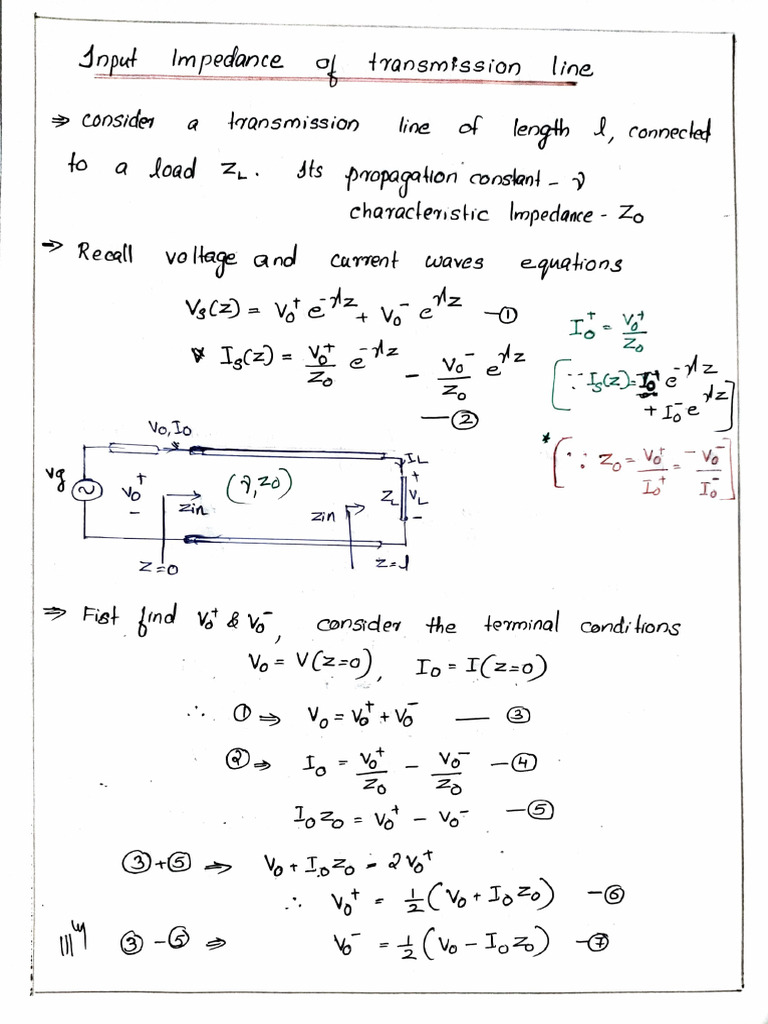 Input Impedance of transmission line
⇒ consider a transmission line of length l, connected
to a load ZL. Its propagation constant - γ
characteristic Impedance - Z0
→ Recall voltage and current waves equations
Vs(z) = V0⁺ e^-γz + V0⁻ e^γz —①
& Is(z) = V0⁺/Z0 e^-γz - V0⁻/Z0 e^γz
—②
I0⁺ = V0⁺/Z0
[∵ Is(z) = I0⁺ e^-γz
+ I0⁻ e^γz]
* [∵ Z0 = V0⁺/I0⁺ = -V0⁻/I0⁻]
V0, I0
IL
Vg
+
V0
-
Zin
(γ, Z0)
Zin
ZL
+
VL
-
Z=0
Z=l
⇒ Fist find V0⁺ & V0⁻, consider the terminal conditions
V0 = V(z=0), I0 = I(z=0)
∴ ① ⇒ V0 = V0⁺ + V0⁻ — ③
② ⇒ I0 = V0⁺/Z0 - V0⁻/Z0 —④
I0 Z0 = V0⁺ - V0⁻ —⑤
③+⑤ ⇒ V0 + I0 Z0 = 2V0⁺
∴ V0⁺ = 1/2 (V0 + I0 Z0) —⑥
|||ly ③-⑤ ⇒ V0⁻ = 1/2 (V0 - I0 Z0) —⑦